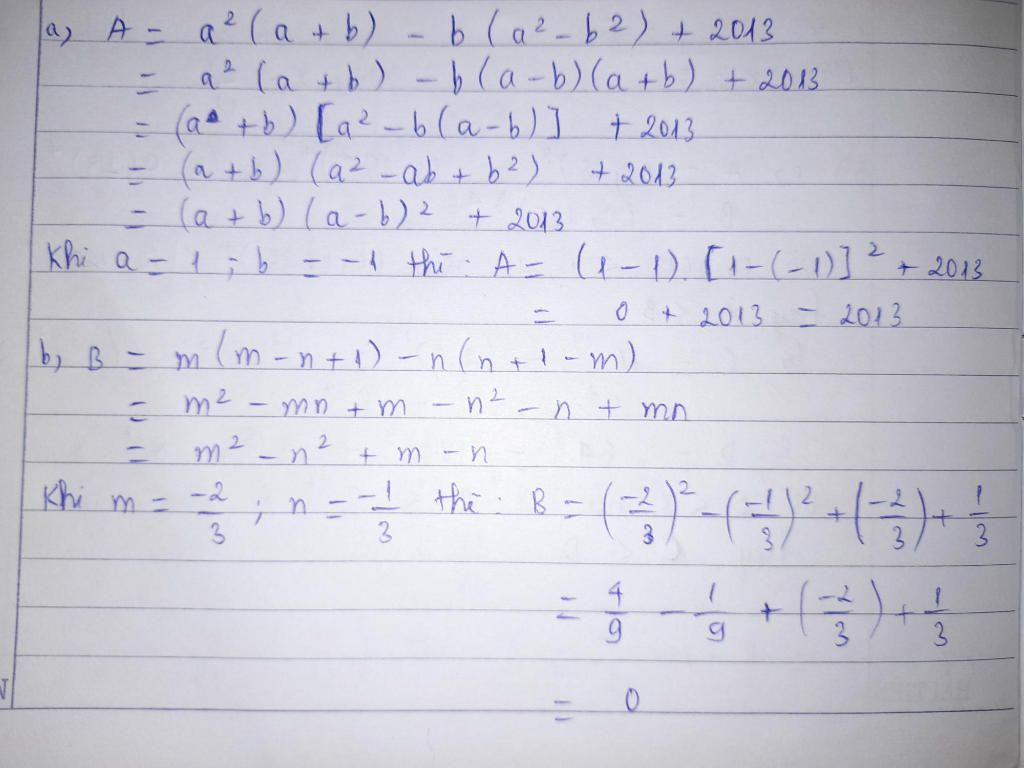 a, A = a² (a + b) - b (a² - b²) + 2013
= a² (a + b) - b (a - b) (a + b) + 2013
= (a + b) [a² - b (a - b)] + 2013
= (a + b) (a² - ab + b²) + 2013
= (a + b) (a - b)² + 2013
Khi a = 1 ; b = -1 thì : A = (1 - 1). [1 - (-1)]² + 2013
= 0 + 2013 = 2013
b, B = m (m - n + 1) - n (n + 1 - m)
= m² - mn + m - n² - n + mn
= m² - n² + m - n
Khi m = -2/3 ; n = -1/3 thì : B = (-2/3)² - (-1/3)² + (-2/3) + 1/3
= 4/9 - 1/9 + (-2/3) + 1/3
= 0